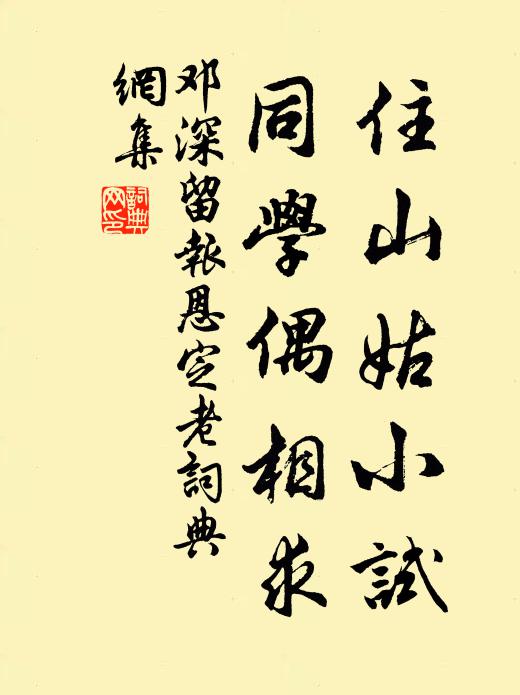 住山姑小試
同學偶相求
邓深留報恩定老詞典
網集
詞典
网印